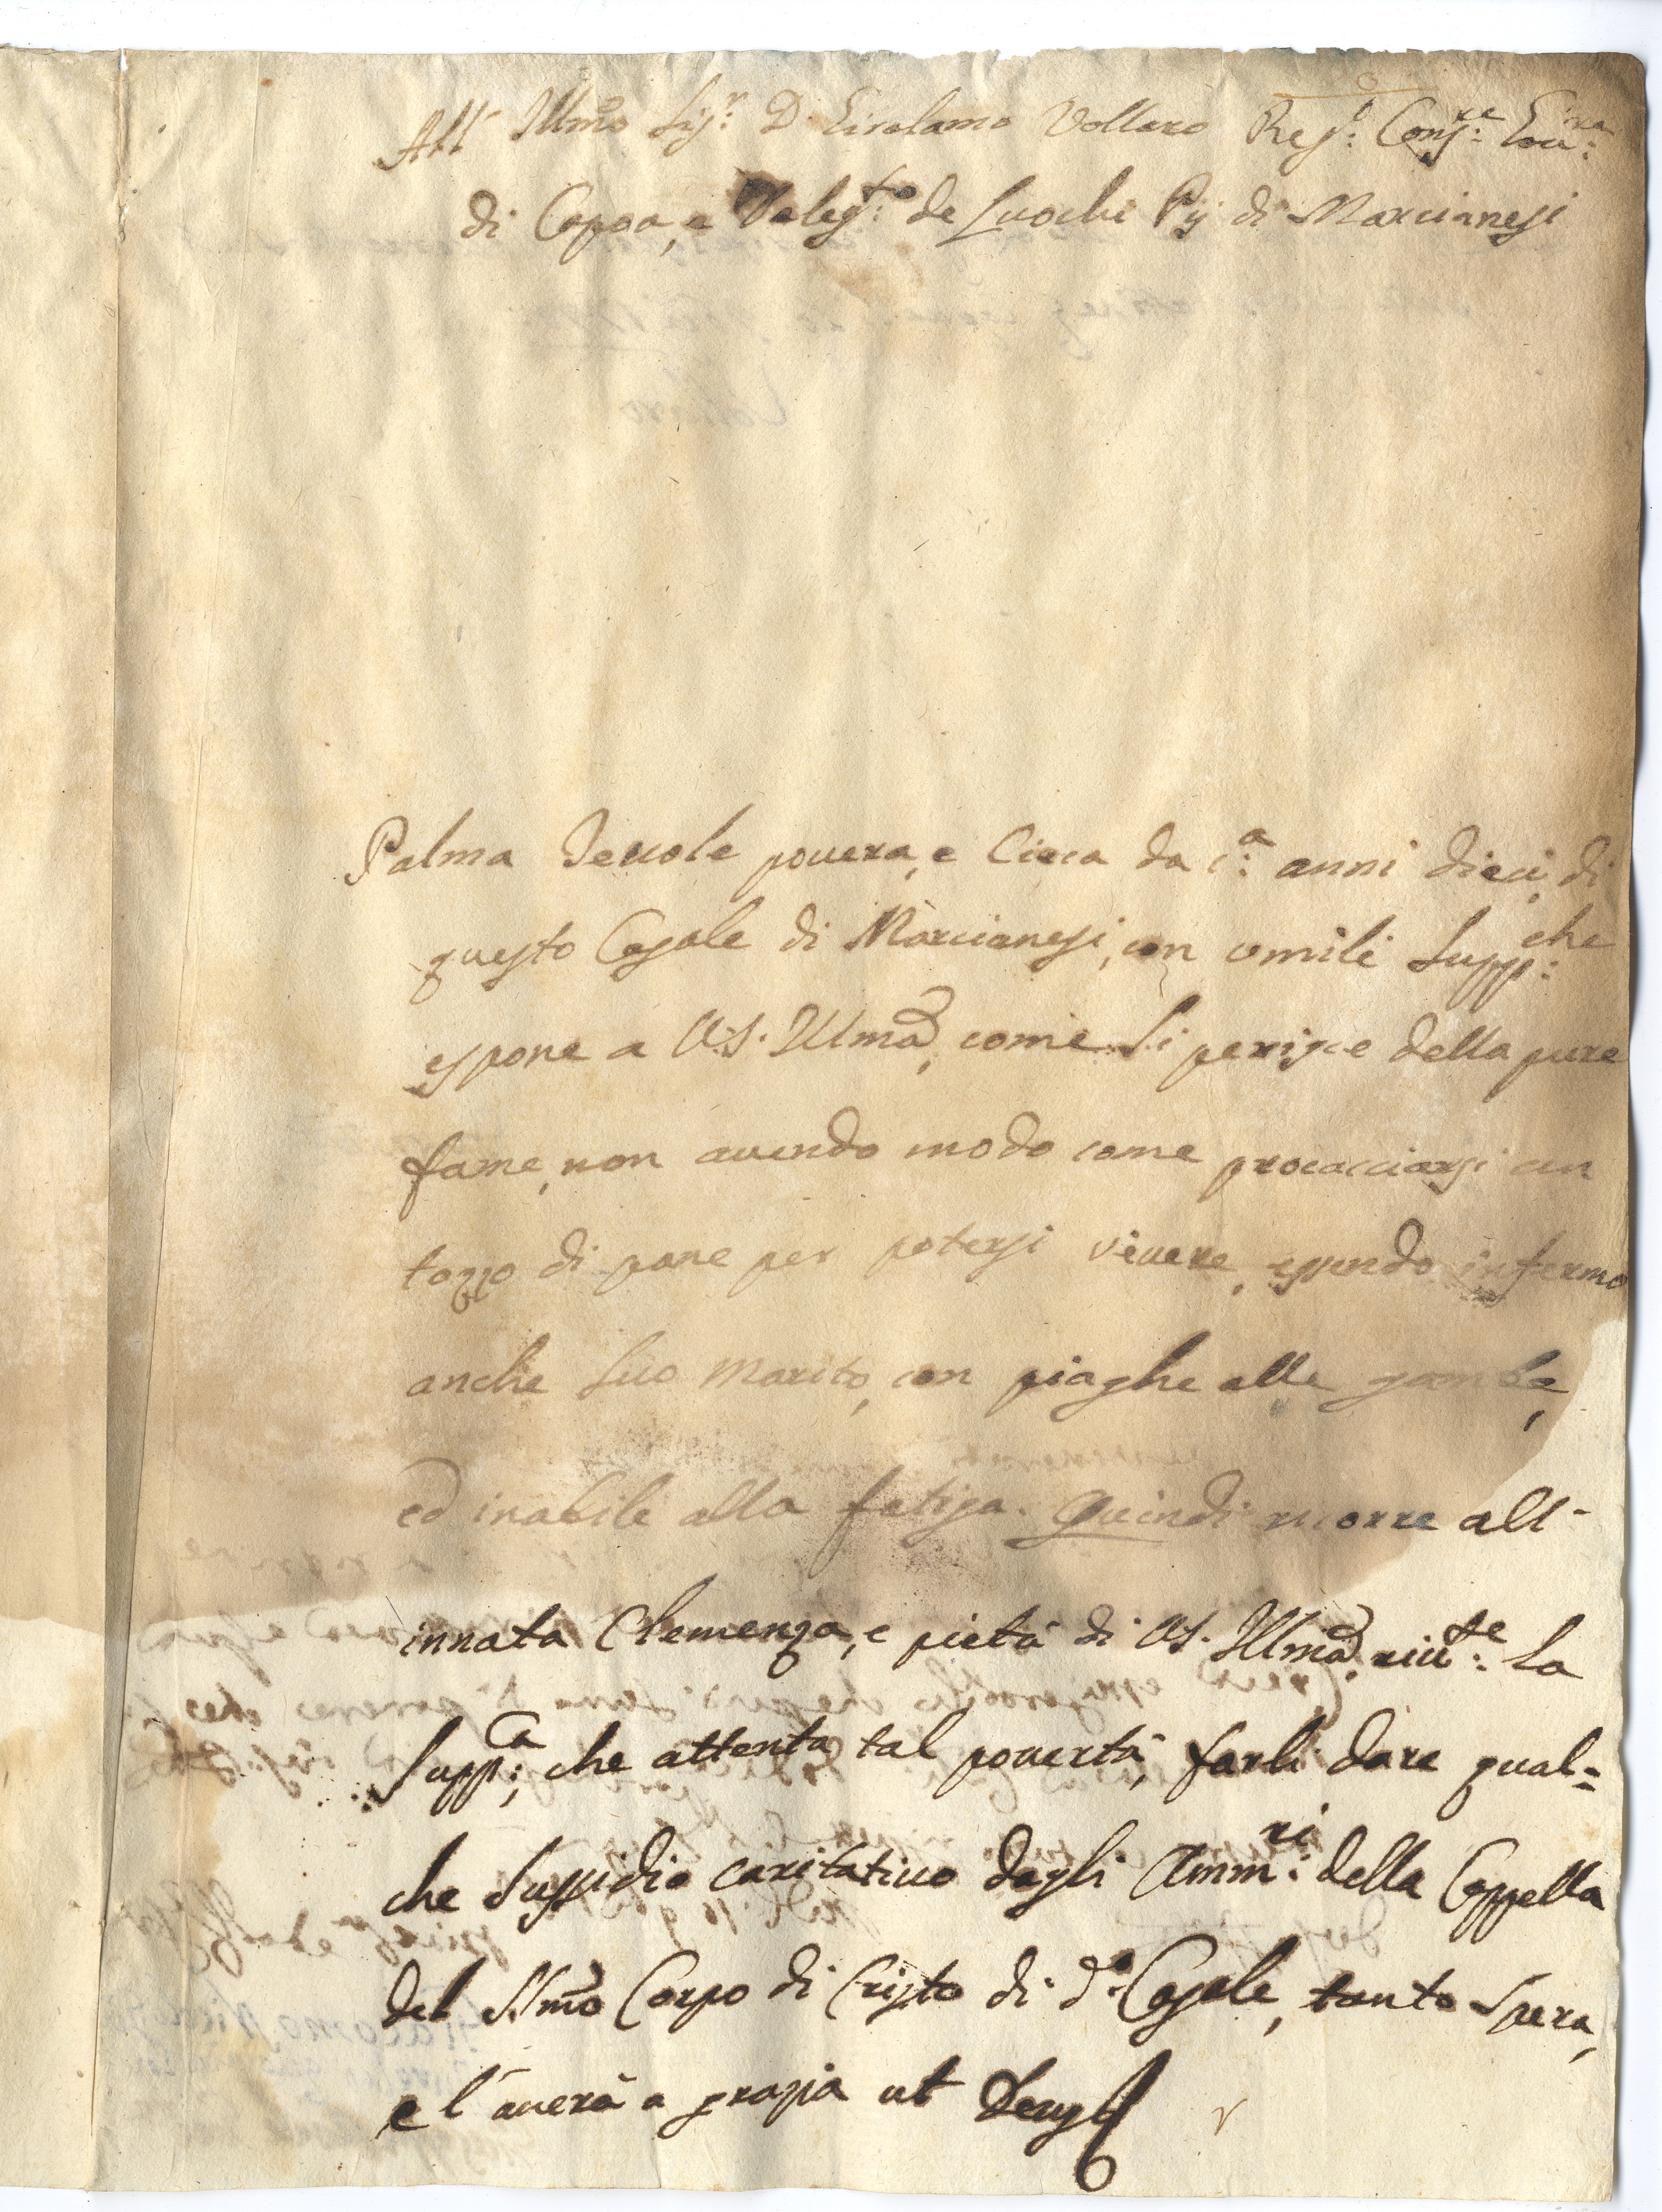 All' Illmo Sig.r D. Girolamo Vollaro Reg.o Cons.re Gov.re
di Capoa, e Deleg.to de Luochi Pij di Marcianesi
Palma povera, e Cieca da c.a anni dieci, di
questo Casale di Marcianesi, con umili Supp.che
espone a V.S. Illma, come Si perisce della pura
fame, non avendo modo come procacciarsi un
tozzo di pane per potersi vivere, essendo infermo
anche Suo Marito, con piaghe alle gambe,
ed inabile alla fatiga. Quindi ricorre all'
innata Clemenza, e pietà di V.S. Illma, la
Supp.ca, che attenta tal povertà, farli dare qual=
che Sussidio caritativo dagli Amm.ri della Cappella
del SSmo Corpo di Cristo di d.o Casale, tanto Spera,
e l'averà a grazia ut Deus